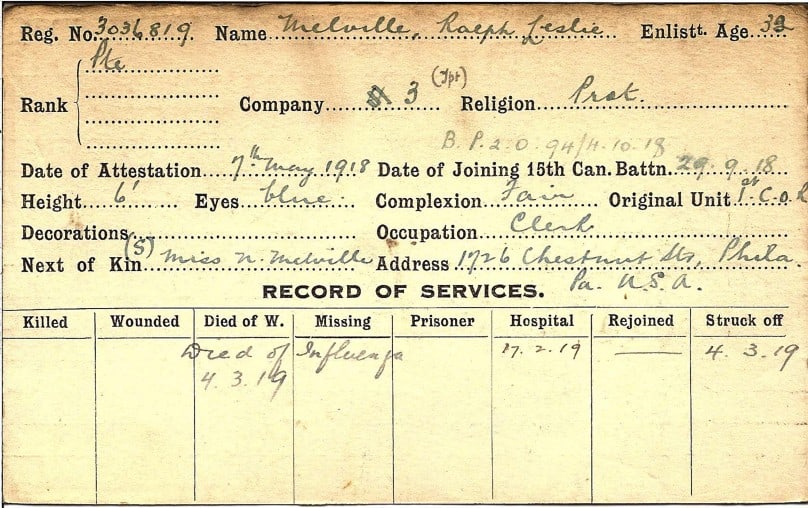 Reg. No. 3036819. Name Melville, Ralph Leslie Enlistt. Age 33
Pte
(Tpt)
Rank Company 3 Religion Prot.
B.P.2.O. 94/4.10.18
Date of Attestation 7th May 1918 Date of Joining 15th Can. Battn. 29.9.18
Height 6' Eyes blue. Complexion Fair Original Unit 1st C.O.R
Decorations Occupation Clerk
(S)
Next of Kin Miss N. Melville Address 1726 Chestnut St, Phila.
Pa. U.S.A.
RECORD OF SERVICES.
Killed Wounded Died of W. Missing Prisoner Hospital Rejoined Struck off
Died of Influenza 17.2.19 4.3.19
4.3.19